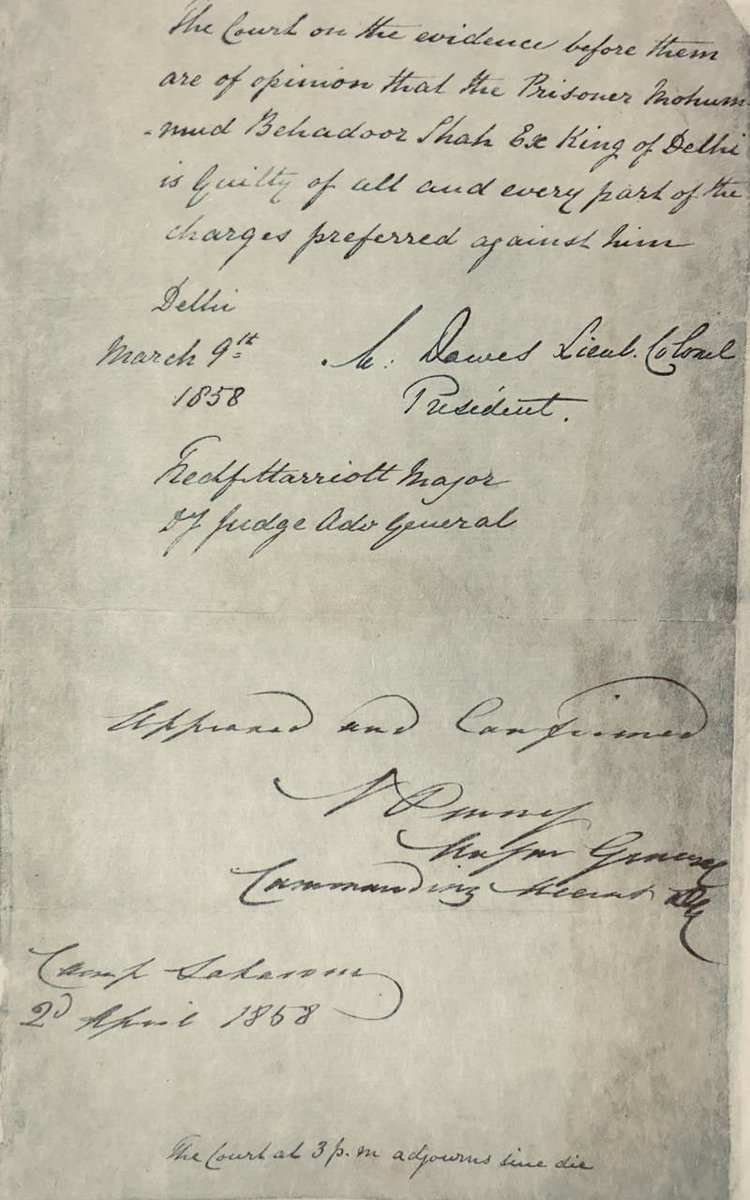 The Court on the evidence before them
are of opinion that the Prisoner Mohum-
-mud Behadoor Shah Ex King of Delhi
is Guilty of all and every part of the
charges preferred against him
Delhi
March 9th
1858
M: Dawes Lieut. Colonel
President.
Fredk Harriott Major
Dy Judge Adv General
Approved and Confirmed
N Penny
Major General
Commanding Meerut
Camp
2d April 1858
The Court at 3 p.m adjourns sine die